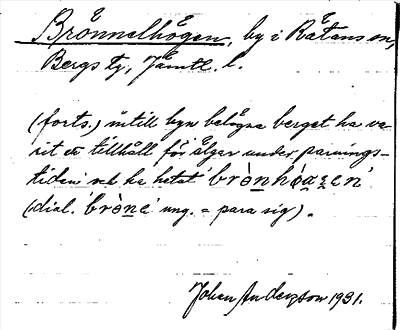 Brånnelhögen, by i Rätans sn,
Bergs tg, Jämtl. l.
(forts.) intill byn belägna berget ha va-
rit ett tillhåll för älgar under parnings-
tiden och ha hetat
(dial. ung. = para sig).
Johan Anderzson 1931.